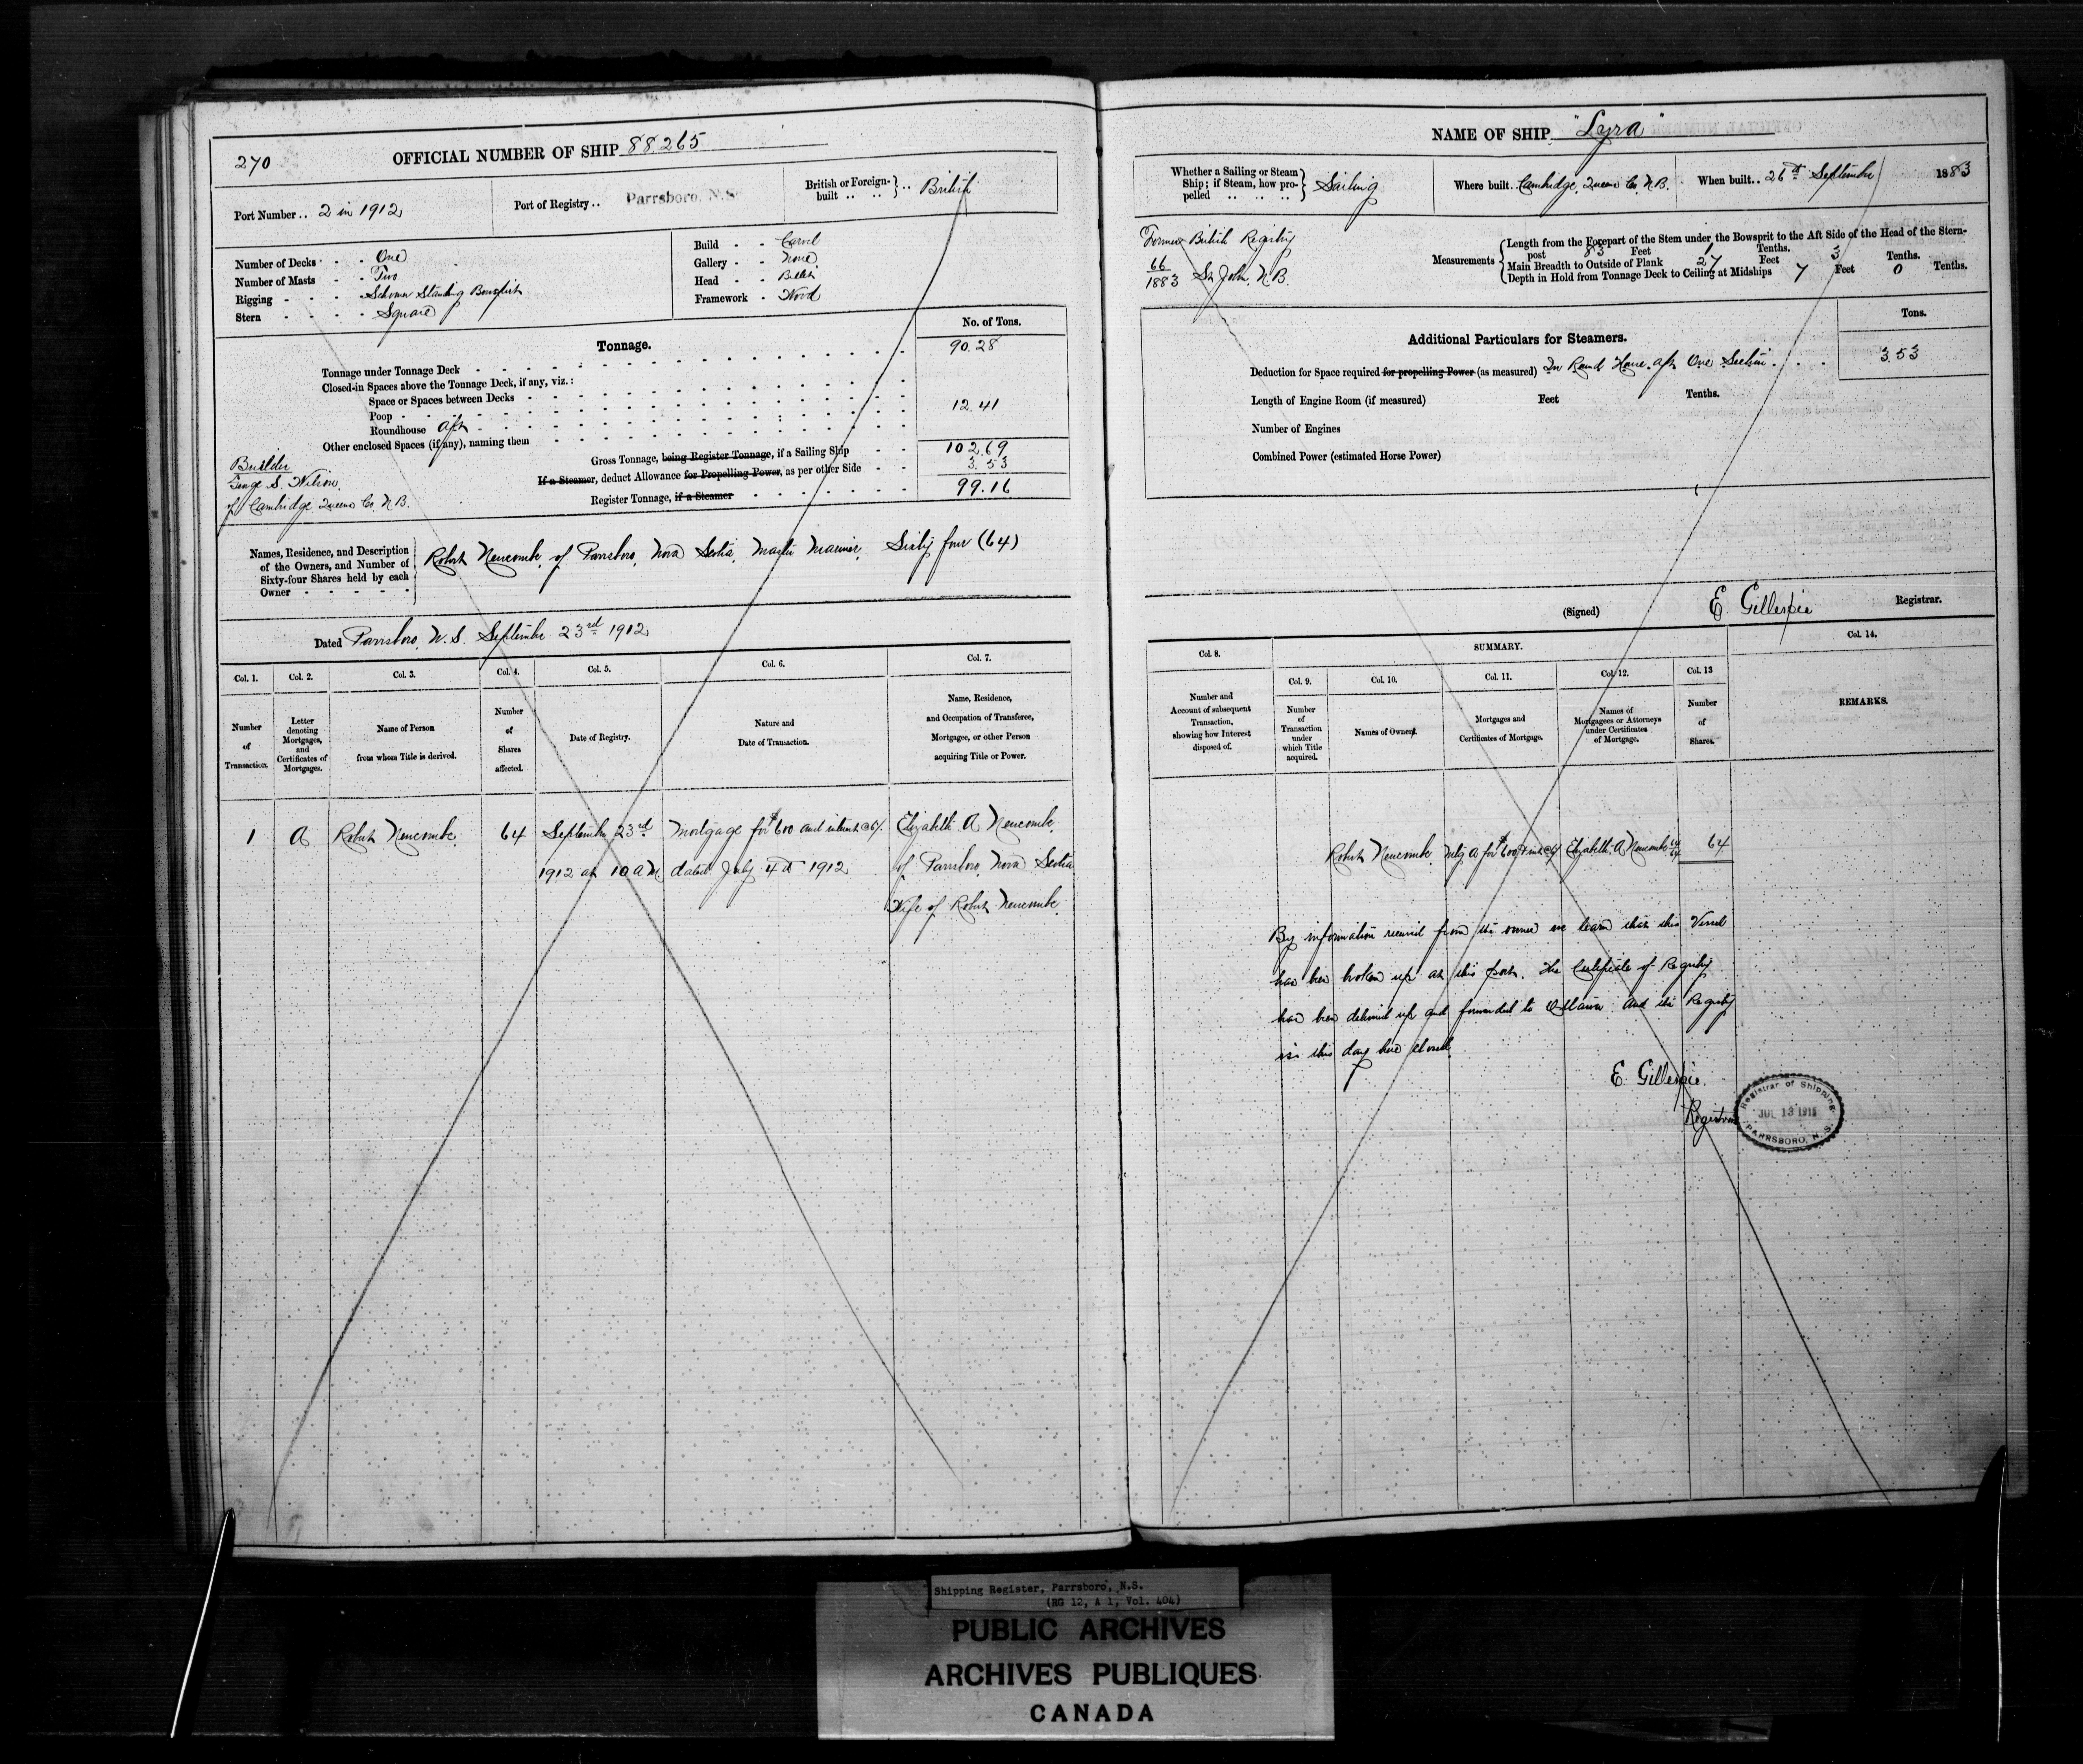 270
OFFICIAL NUMBER OF SHIP 88,265
Port Number .. 2 in 1912
Port of Registry .. Parrsboro, N.S.
British or Foreign-built .. .. } .. British
Number of Decks - - One
Number of Masts - - Two
Rigging - - - - Schooner Standing Bowsprit
Stern - - - - Square
Build - - Carvel
Gallery - - None
Head - - Billet
Framework - Wood
Tonnage.
No. of Tons.
Tonnage under Tonnage Deck
90.28
Closed-in Spaces above the Tonnage Deck, if any, viz.:
Space or Spaces between Decks
Poop
Roundhouse Aft
12.41
Other enclosed Spaces (if any), naming them
Gross Tonnage, being Register Tonnage, if a Sailing Ship
102.69
If a Steamer, deduct Allowance for Propelling Power, as per other Side
3.53
Register Tonnage, if a Steamer
99.16
Builder
S. Wilson
of Cambridge Queens Co. N.B.
Names, Residence, and Description
of the Owners, and Number of
Sixty-four Shares held by each
Owner
Robert Newcombe, of Parrsboro, Nova Scotia, Master Mariner, Sixty four (64)
Dated Parrsboro, N.S. September 23rd 1912
Col. 1. Col. 2. Col. 3. Col. 4. Col. 5. Col. 6. Col. 7.
Number of Transaction.
Letter denoting Mortgages, and Certificates of Mortgages.
Name of Person from whom Title is derived.
Number of Shares affected.
Date of Registry.
Nature and Date of Transaction.
Name, Residence, and Occupation of Transferee, Mortgagee, or other Person acquiring Title or Power.
1 A Robert Newcombe 64 September 23rd Mortgage for $600 and interest @ 6%. Elizabeth A Newcombe
1912 at 10 a.m. dated July 4th 1912 of Parrsboro Nova Scotia
Wife of Robert Newcombe
NAME OF SHIP "Lyra"
Whether a Sailing or Steam
Ship; if Steam, how pro-
pelled .. .. ..
Sailing
Where built. Cambridge, Queens Co. N.B.
When built.. 26th September 1883
Former British Registry
66
1883 St. John, N.B.
Measurements
Length from the Forepart of the Stem under the Bowsprit to the Aft Side of the Head of the Stern-
post 83 Feet 1 Tenths.
Main Breadth to Outside of Plank 27 Feet 3 Tenths.
Depth in Hold from Tonnage Deck to Ceiling at Midships 7 Feet 0 Tenths.
Additional Particulars for Steamers.
Tons.
Deduction for Space required for propelling Power (as measured) In Round House aft One Section
3.53
Length of Engine Room (if measured) Feet Tenths.
Number of Engines
Combined Power (estimated Horse Power)
(Signed) E. Gillespie Registrar.
SUMMARY.
Col. 8. Col. 9. Col. 10. Col. 11. Col. 12. Col. 13 Col. 14.
Number and Account of subsequent Transaction, showing how Interest disposed of.
Number of Transaction under which Title acquired.
Names of Owners.
Mortgages and Certificates of Mortgage.
Names of Mortgagees or Attorneys under Certificates of Mortgage.
Number of Shares.
REMARKS.
Robert Newcombe Mtg A for $600 & int @ 6% Elizabeth A Newcombe 64/64 64
By information received from the owner we learn that this Vessel
has been broken up at this port. The Certificate of Registry
has been delivered up and forwarded to Ottawa and the Registry
is this day here closed
E. Gillespie
Registrar
Registrar of Shipping
PARRSBORO, N.S.
Shipping Register, Parrsboro, N.S.
(RG 12, A 1, Vol. 404)
PUBLIC ARCHIVES
ARCHIVES PUBLIQUES
CANADA